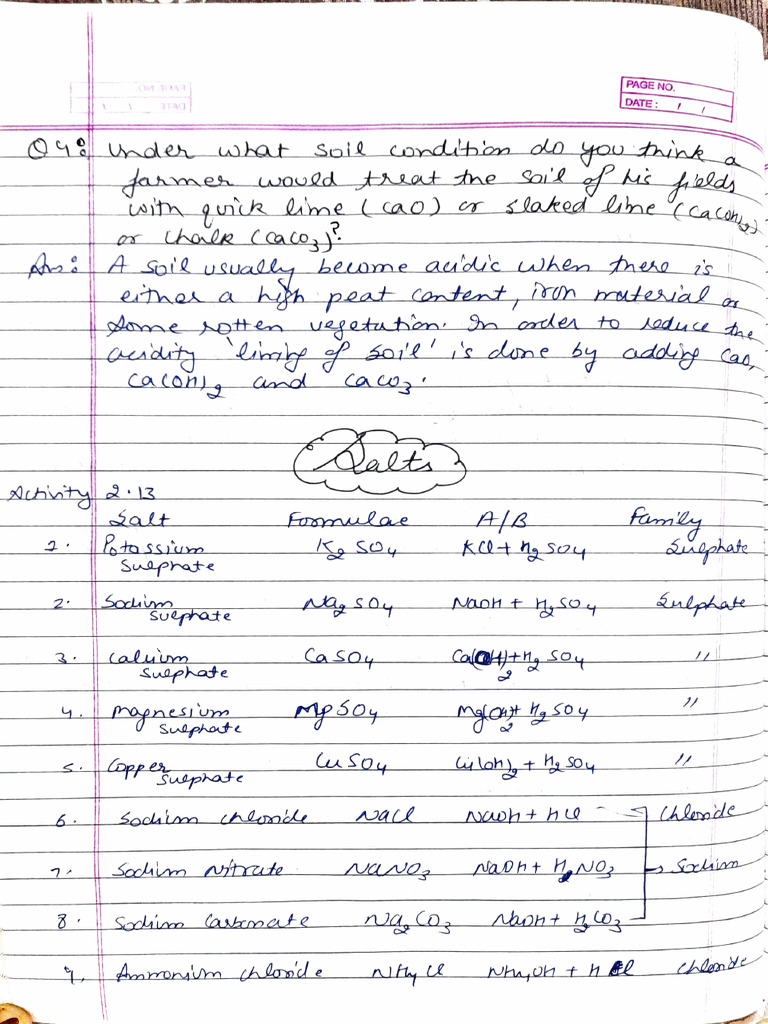 PAGE NO.
DATE : / /
Q4: Under what soil condition do you think a
farmer would treat the soil of his fields
with quick lime (CaO) or slaked lime (Ca(OH)2)
or chalk (CaCO3)?
Ans: A soil usually become acidic when there is
either a high peat content, iron material or
some rotten vegetation. In order to reduce the
acidity 'liming of soil' is done by adding CaO,
Ca(OH)2 and CaCO3.
Salts
Activity 2.13
Salt Formulae A/B Family
1. Potassium Sulphate K2SO4 KCl + H2SO4 Sulphate
2. Sodium Sulphate Na2SO4 NaOH + H2SO4 Sulphate
3. Calcium Sulphate CaSO4 Ca(OH)2 + H2SO4 "
4. Magnesium Sulphate MgSO4 Mg(OH)2 + H2SO4 "
5. Copper Sulphate CuSO4 Cu(OH)2 + H2SO4 "
6. Sodium chloride NaCl NaOH + HCl Chloride
7. Sodium Nitrate NaNO3 NaOH + HNO3 Sodium
8. Sodium Carbonate Na2CO3 NaOH + H2CO3
9. Ammonium chloride NH4Cl NH4OH + HCl Chloride